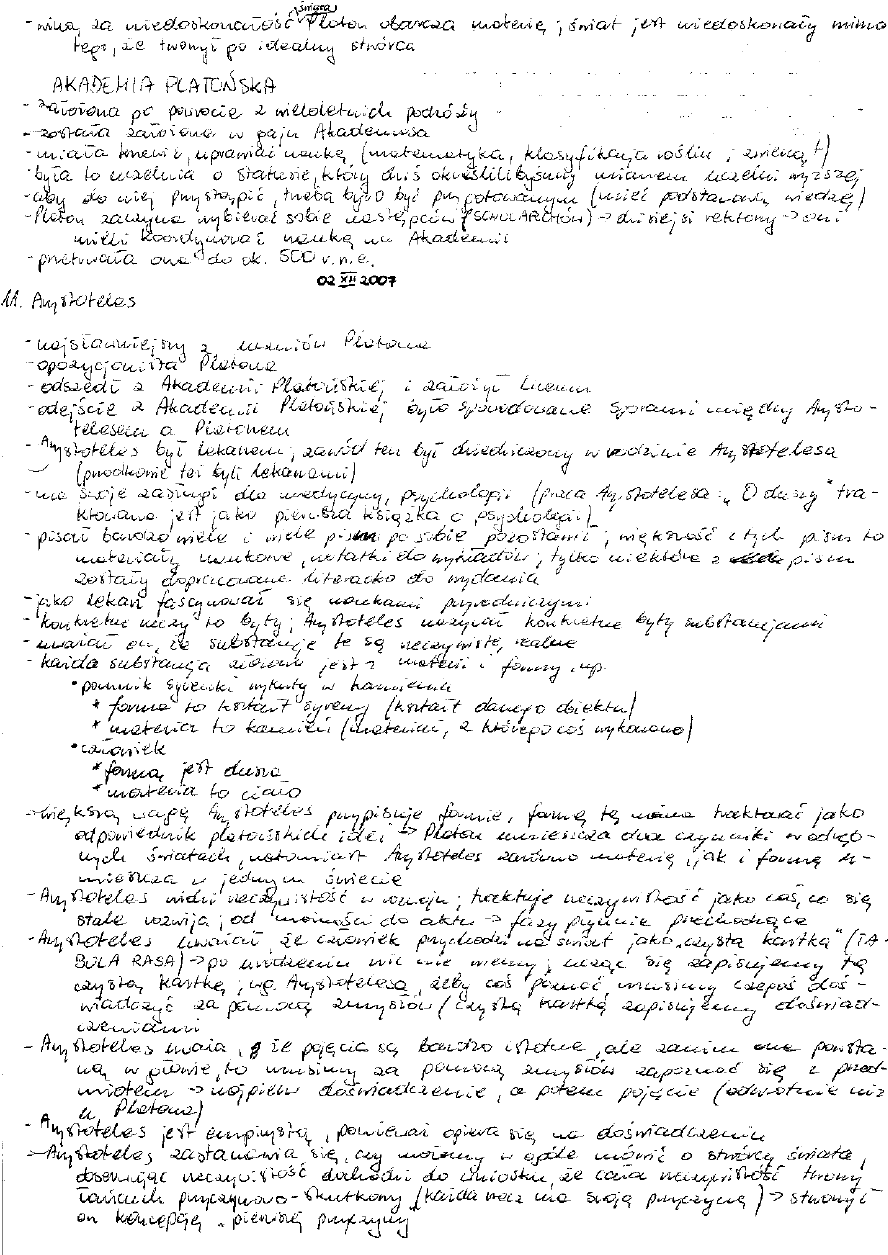 - winą za niedoskonałość świata Platon obarcza materię; świat jest niedoskonały mimo
tego, że tworzył go idealny stwórca
AKADEMIA PLATOŃSKA
- założona po powrocie z wieloletnich podróży
- została założona w gaju Akademosa
- miała krzewić, uprawiać naukę (matematyka, klasyfikacja roślin i zwierząt)
- była to uczelnia o statusie, który dziś określilibyśmy mianem uczelni wyższej
- aby do niej przystąpić, trzeba było być przygotowanym (mieć podstawową wiedzę)
- Platon zaczyna wybierać sobie następców (SCHOLARCHÓW) → dzisiejsi rektorzy → oni
mieli koordynować naukę na Akademii
- przetrwała ona do ok. 500 r. n.e.
02 XII 2007
11. Arystoteles
- najsławniejszy z uczniów Platona
- opozycjonista Platona
- odszedł z Akademii Platońskiej i założył Liceum
- odejście z Akademii Platońskiej było spowodowane sporami między Arysto-
telesem a Platonem
- Arystoteles był lekarzem; zawód ten był dziedziczony w rodzinie Arystotelesa
(przodkowie też byli lekarzami)
- ma swoje zasługi dla medycyny, psychologii (praca Arystotelesa: „O duszy" tra-
ktowana jest jako pierwsza książka o psychologii)
- pisał bardzo wiele i wiele pism po sobie pozostawił; większość z tych pism to
materiały naukowe, notatki do wykładów; tylko niektóre z pism
zostały dopracowane literacko do wydania
- jako lekarz fascynował się naukami przyrodniczymi
- konkretne rzeczy to byty; Arystoteles nazywał konkretne byty substancjami
- uważał on, że substancje te są rzeczywiste, realne
- każda substancja złożona jest z materii i formy, np.
• pomnik syrenki wykuty w kamieniu
* forma to kształt syreny (kształt danego obiektu)
* materia to kamień (materiał, z którego coś wykonano)
• człowiek
* formą jest dusza
* materia to ciało
- większą wagę Arystoteles przypisuje formie, formę tę można traktować jako
odpowiednik platońskich idei → Platon umieszcza dwa czynniki w odręb-
nych światach, natomiast Arystoteles zarówno materię, jak i formę u-
mieszcza w jednym świecie
- Arystoteles widzi rzeczywistość w rozwoju; traktuje rzeczywistość jako coś, co się
stale rozwija; od możności do aktu → fazy płynnie przechodzące
- Arystoteles uważał, że człowiek przychodzi na świat jako „czysta kartka" (TA-
BULA RASA) → po urodzeniu nic nie wiemy; ucząc się zapisujemy tę
czystą kartkę; wg. Arystotelesa, żeby coś poznać, musimy czegoś doś-
wiadczyć za pomocą zmysłów (czystą kartkę zapisujemy doświad-
czeniami
- Arystoteles uważa, że pojęcia są bardzo istotne, ale zanim one powsta-
ną w głowie, to musimy za pomocą zmysłów zapoznać się z przed-
miotem → najpierw doświadczenie, a potem pojęcie (odwrotnie niż
u Platona)
- Arystoteles jest empirystą, ponieważ opiera się na doświadczeniu
- Arystoteles zastanawia się, czy możemy w ogóle mówić o stwórcy świata,
obserwując rzeczywistość dochodzi do wniosku, że cała rzeczywistość tworzy
łańcuch przyczynowo-skutkowy (każda rzecz ma swoją przyczynę) → stworzył
on koncepcję „pierwszej przyczyny"